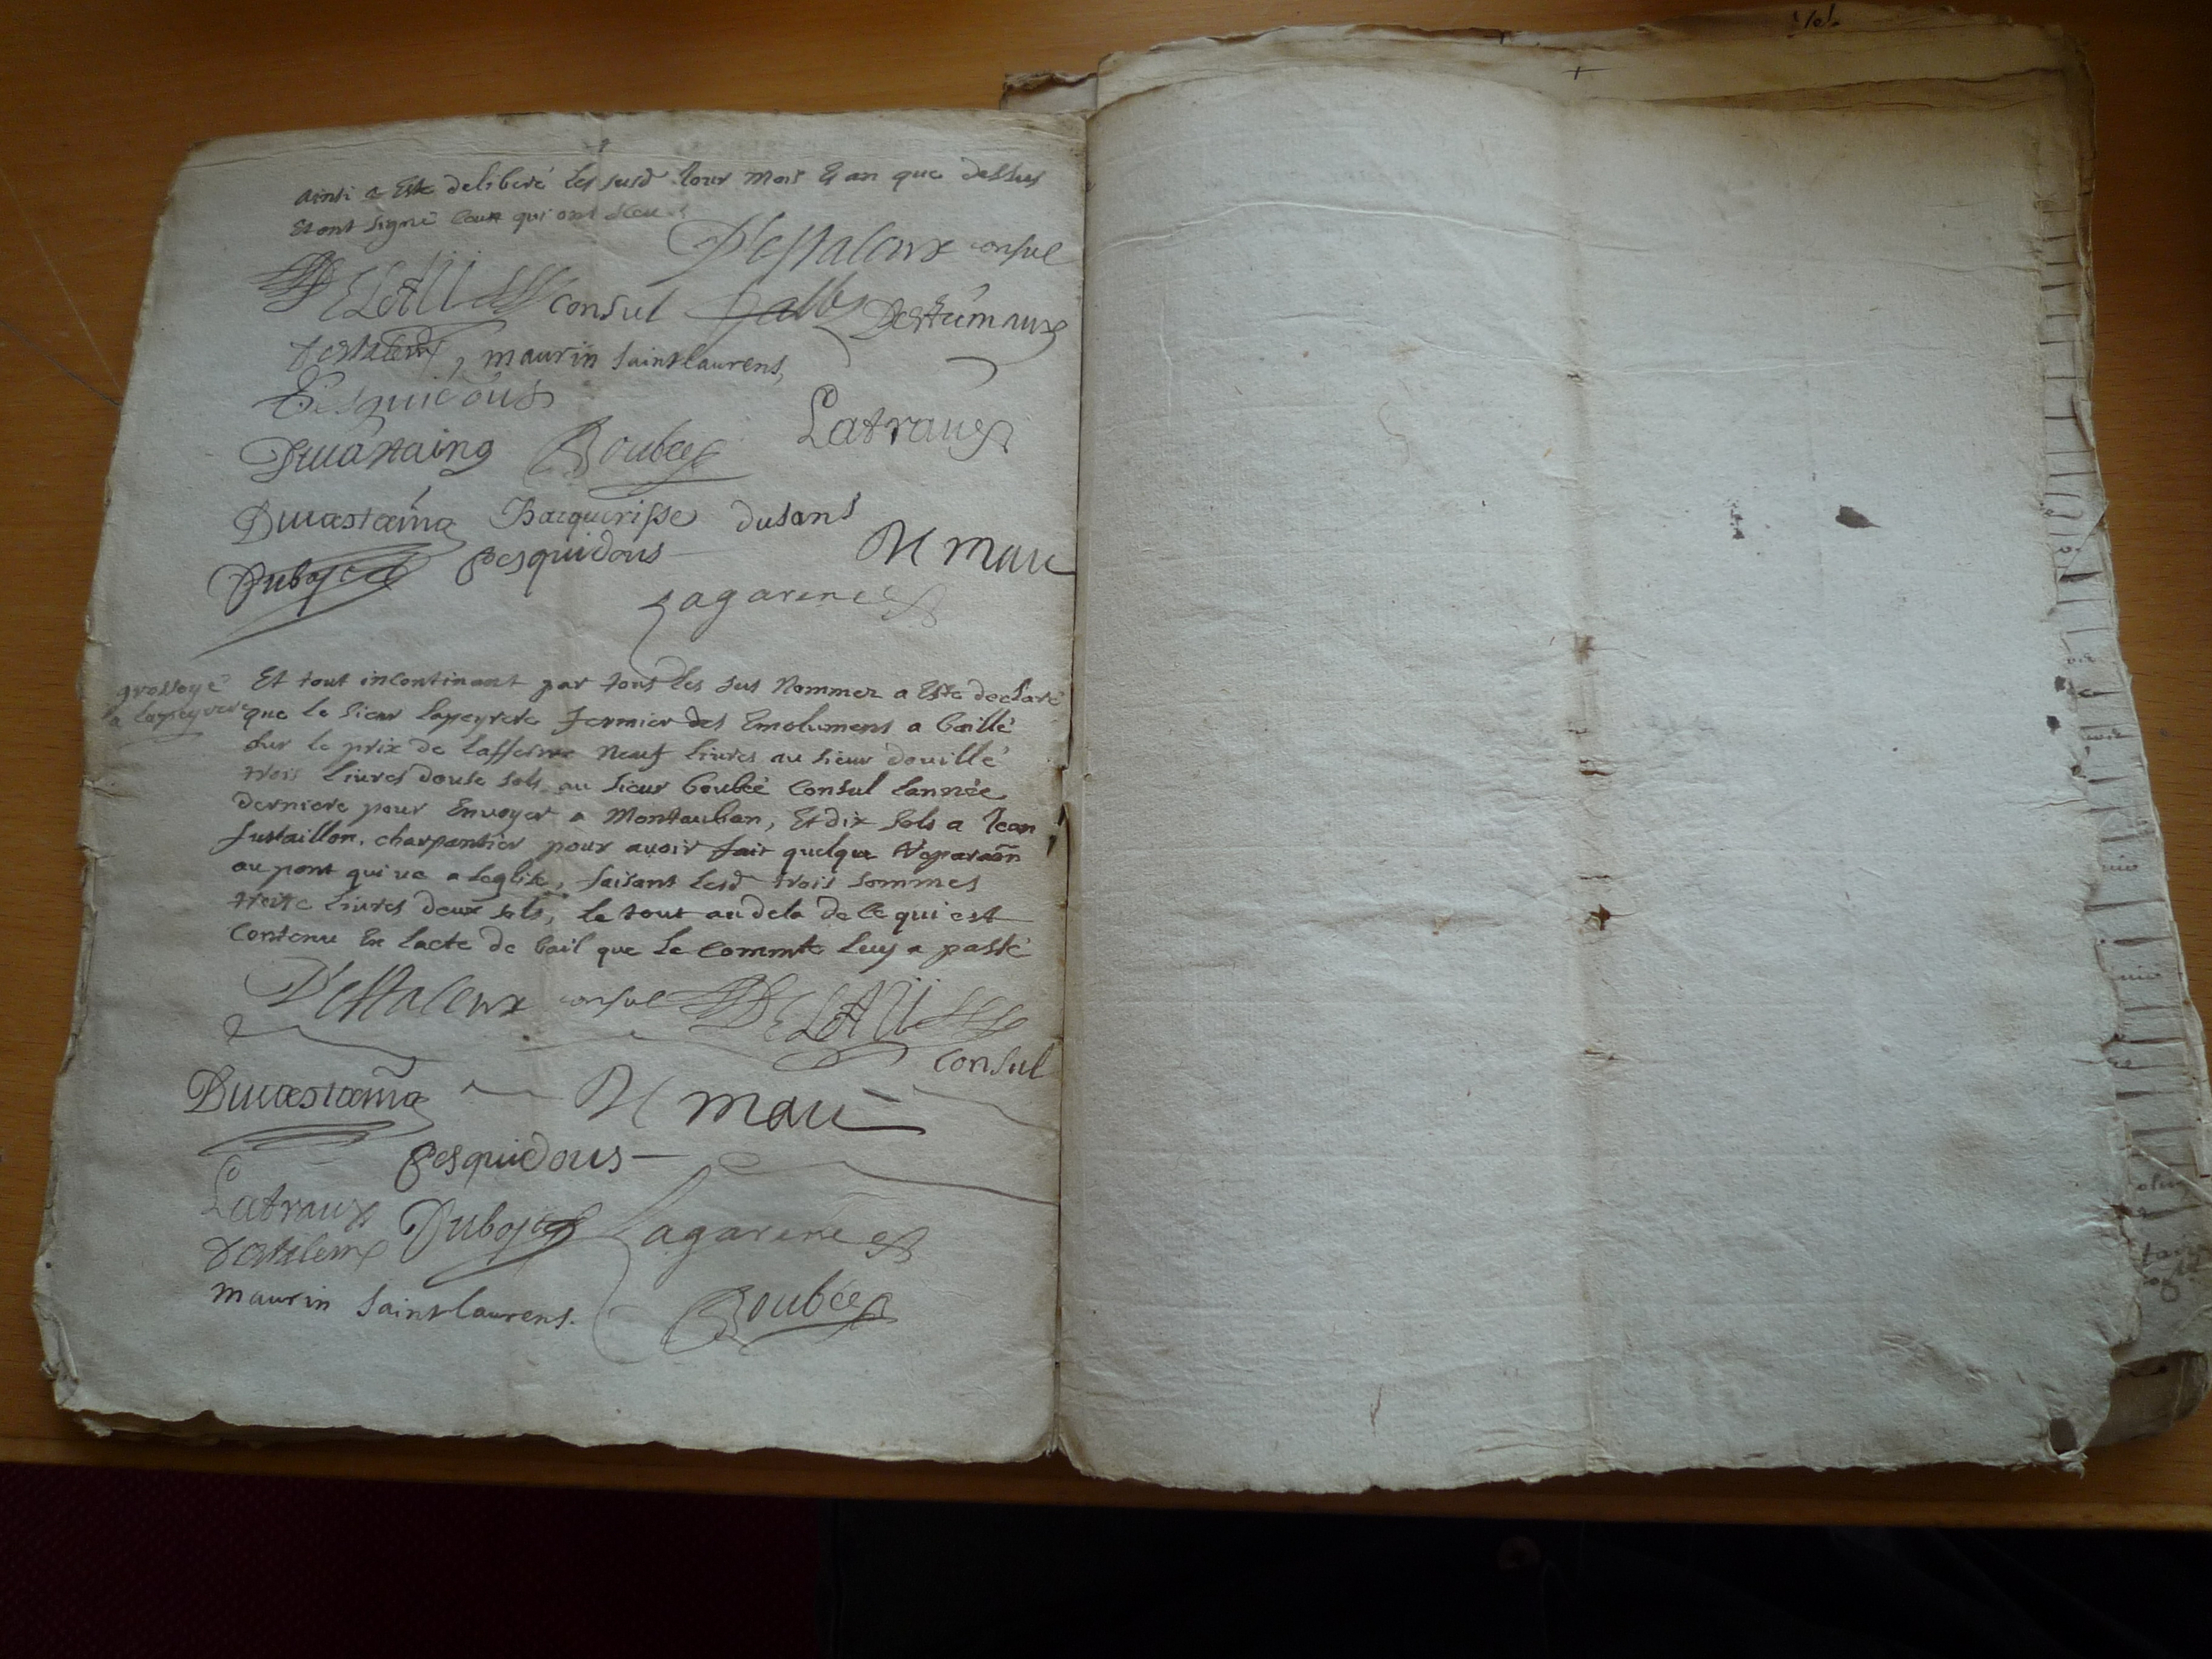 ainsi a Esté deliberé les susd jour mois & an que dessus
Et ont signé ceux qui ont sceu
D'estaleux consul
consul
maurin saint laurens,
Pesquidous
Latraux
Ducastaing Boubée
Ducastaing Bacquerisse dusans
Dubosc pesquidous
N mau
Lagarene
Et tout incontinant par tous les sus Nommez a Esté declaré
grossoyé
a lapeyrere
que le sieur lapeyrere fermier des Emolumens a baillé
sur le prix de lafferme neuf livres au sieur douillé
trois livres douse sols au sieur boubée Consul lannée
derniere pour Envoyer a Montauban, Et dix sols a Jean
Justaillon. charpantier pour avoir fait quelque Reparaon
au pont qui va a leglise, faisant lesd trois sommes
treitze livres deux sols, le tout au dela de ce qui est
Contenu En lacte de bail que le commté luy a passé
D'estaleux consul
consul
Ducastaing N mau
pesquidous
Latraux Dubosc Lagarene
maurin saint laurens.
Boubée